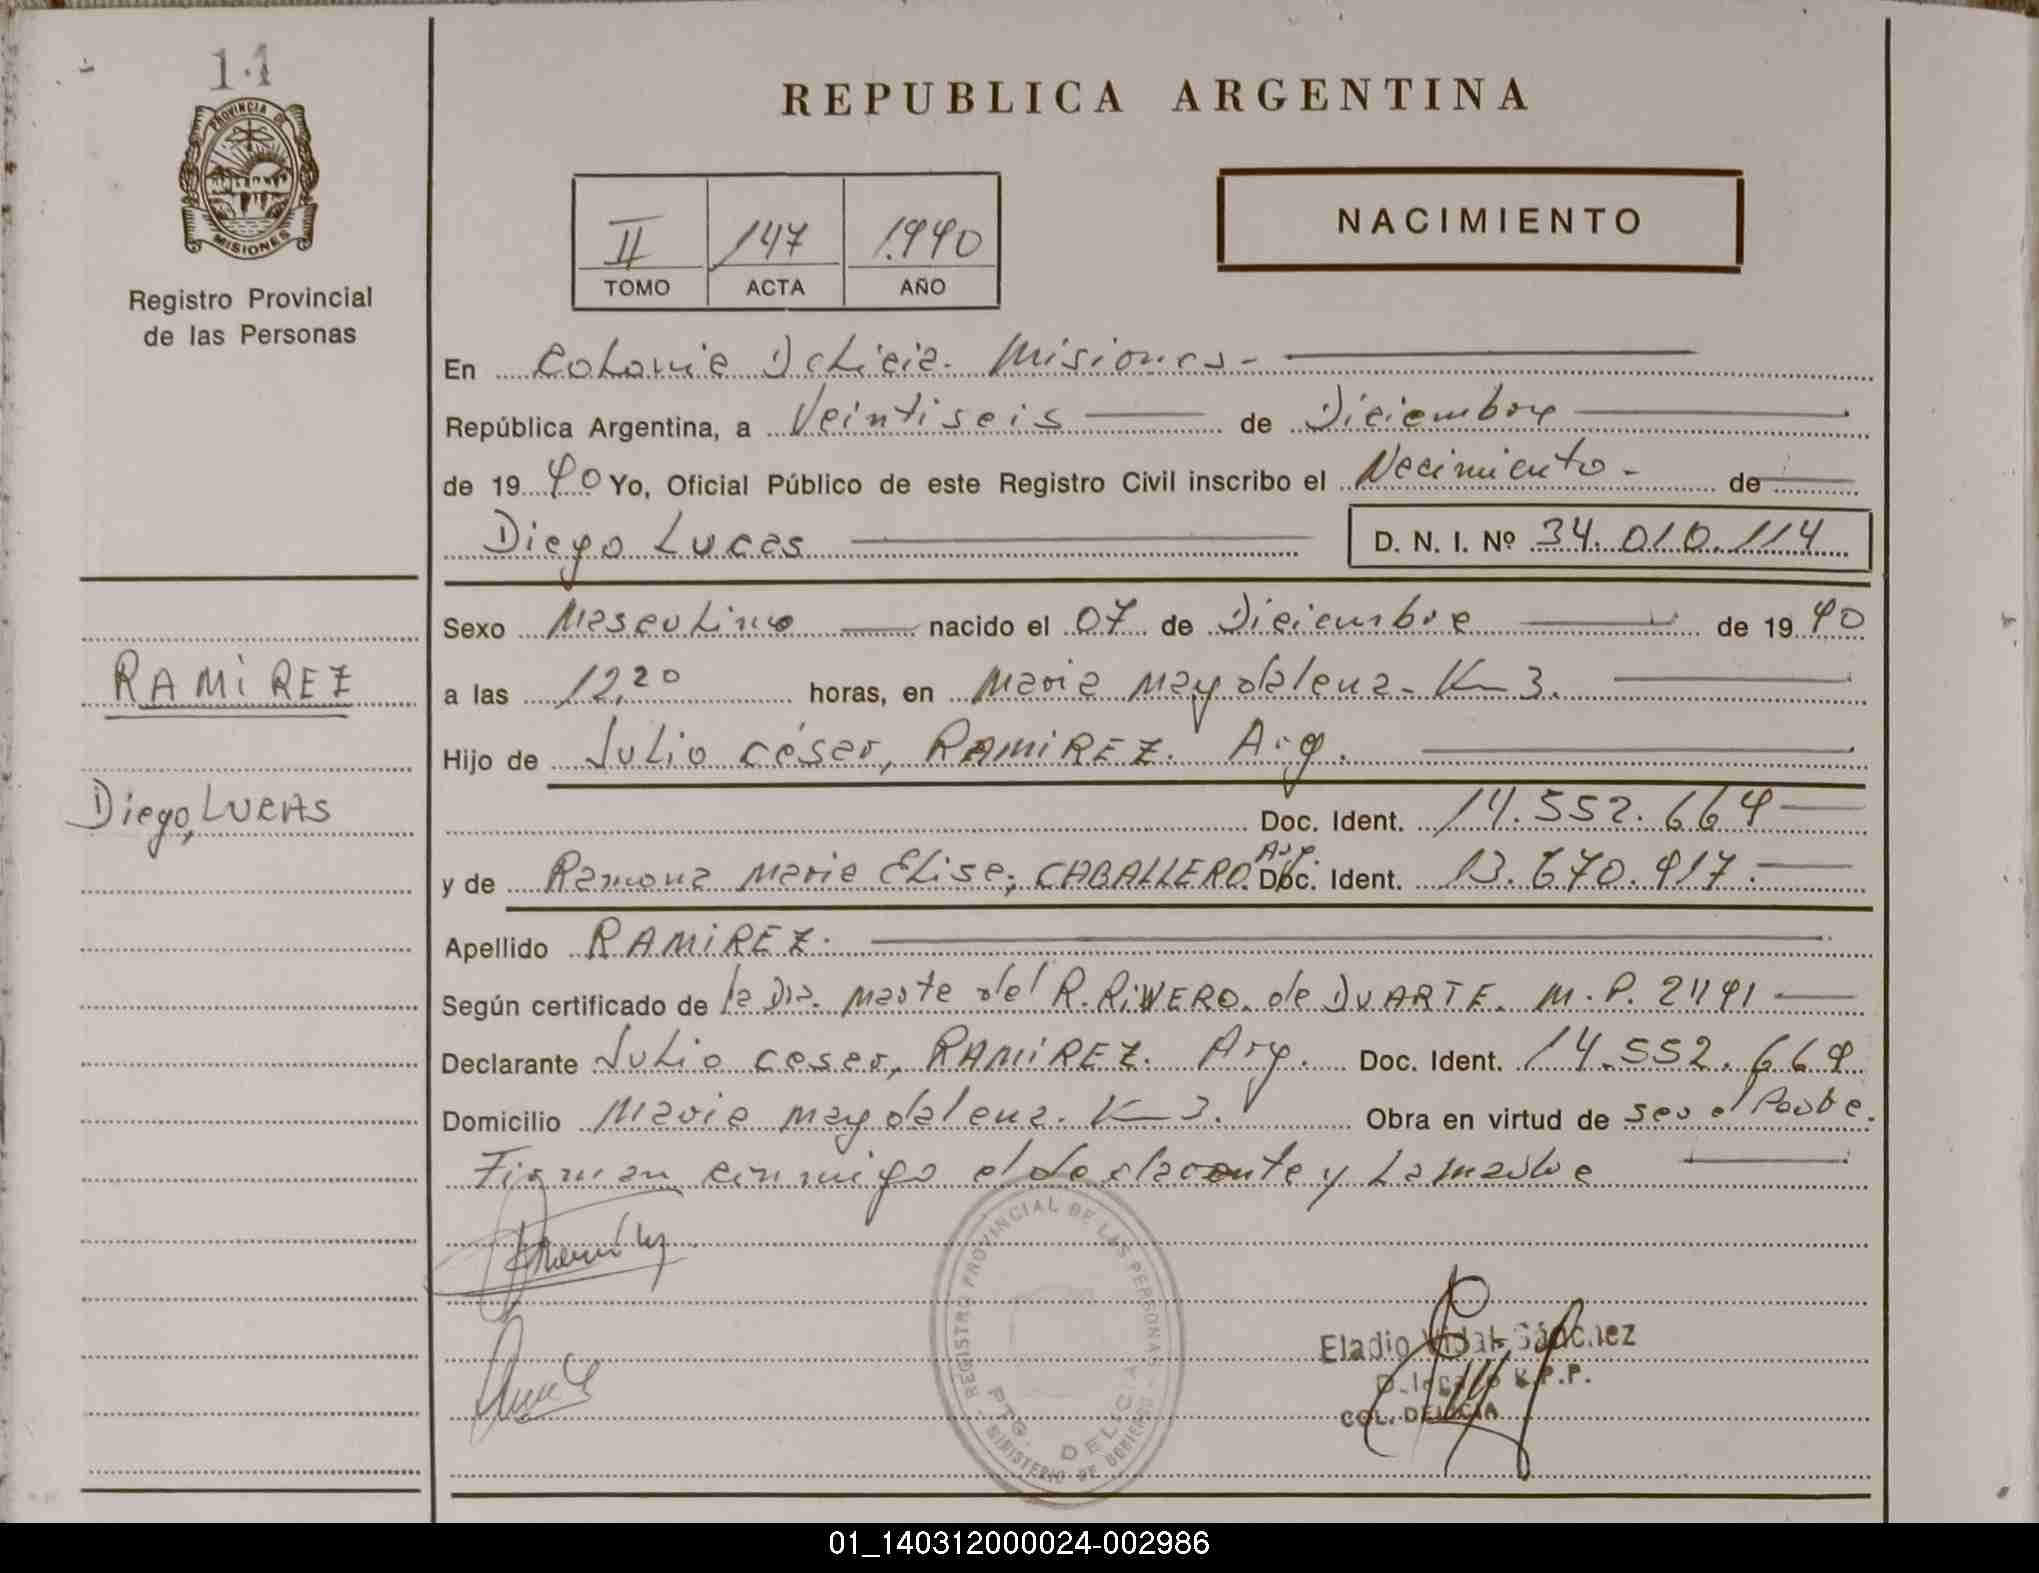 11
PROVINCIA DE
MISIONES
Registro Provincial
de las Personas
RAMIREZ
Diego, LUCAS
REPUBLICA ARGENTINA
II 147 1.990
TOMO ACTA AÑO
NACIMIENTO
En Colonia Delicia. Misiones -
República Argentina, a Veintiseis de Diciembre
de 19 90 Yo, Oficial Público de este Registro Civil inscribo el Nacimiento - de
Diego Lucas D. N. I. Nº 34.010.114
Sexo Masculino nacido el 07 de Diciembre de 19 90
a las 12,20 horas, en Maria Magdalena - Km 3.
Hijo de Julio César, RAMIREZ. Arg.
Doc. Ident. 14.552.669
y de Ramona Maria Elisa, CABALLERO. Arg. Doc. Ident. 13.670.917.
Apellido RAMIREZ.
Según certificado de la Dra. Marta del R. RIVERO. de DUARTE. M.P. 21191
Declarante Julio Cesar, RAMIREZ. Arg. Doc. Ident. 14.552.669
Domicilio Maria Magdalena. Km 3. Obra en virtud de ser el Padre.
Firman conmigo el declarante y la madre
REGISTRO PROVINCIAL DE LAS PERSONAS
DELICIA
MINISTERIO DE GOBIERNO
Eladio Vidal Sánchez
Delegado R.P.P.
COL. DELICIA
01_140312000024-002986